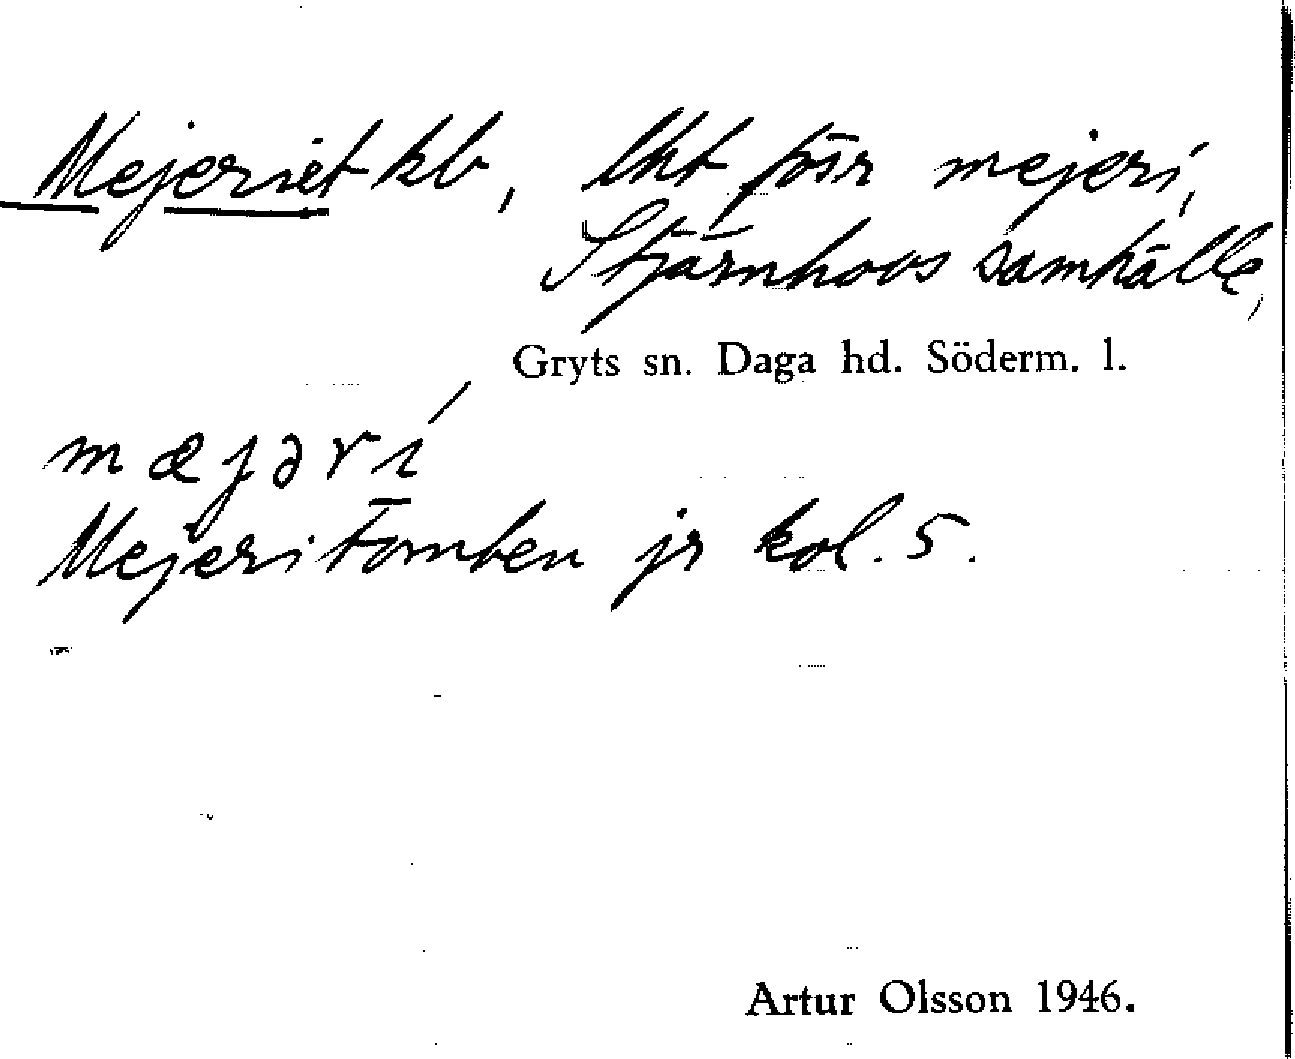 Mejeriet kb, lht förr mejeri,
Stjärnhovs samhälle,
Gryts sn. Daga hd. Söderm. l.
mæjəri
Mejeritomten jr kol. 5.
Artur Olsson 1946.